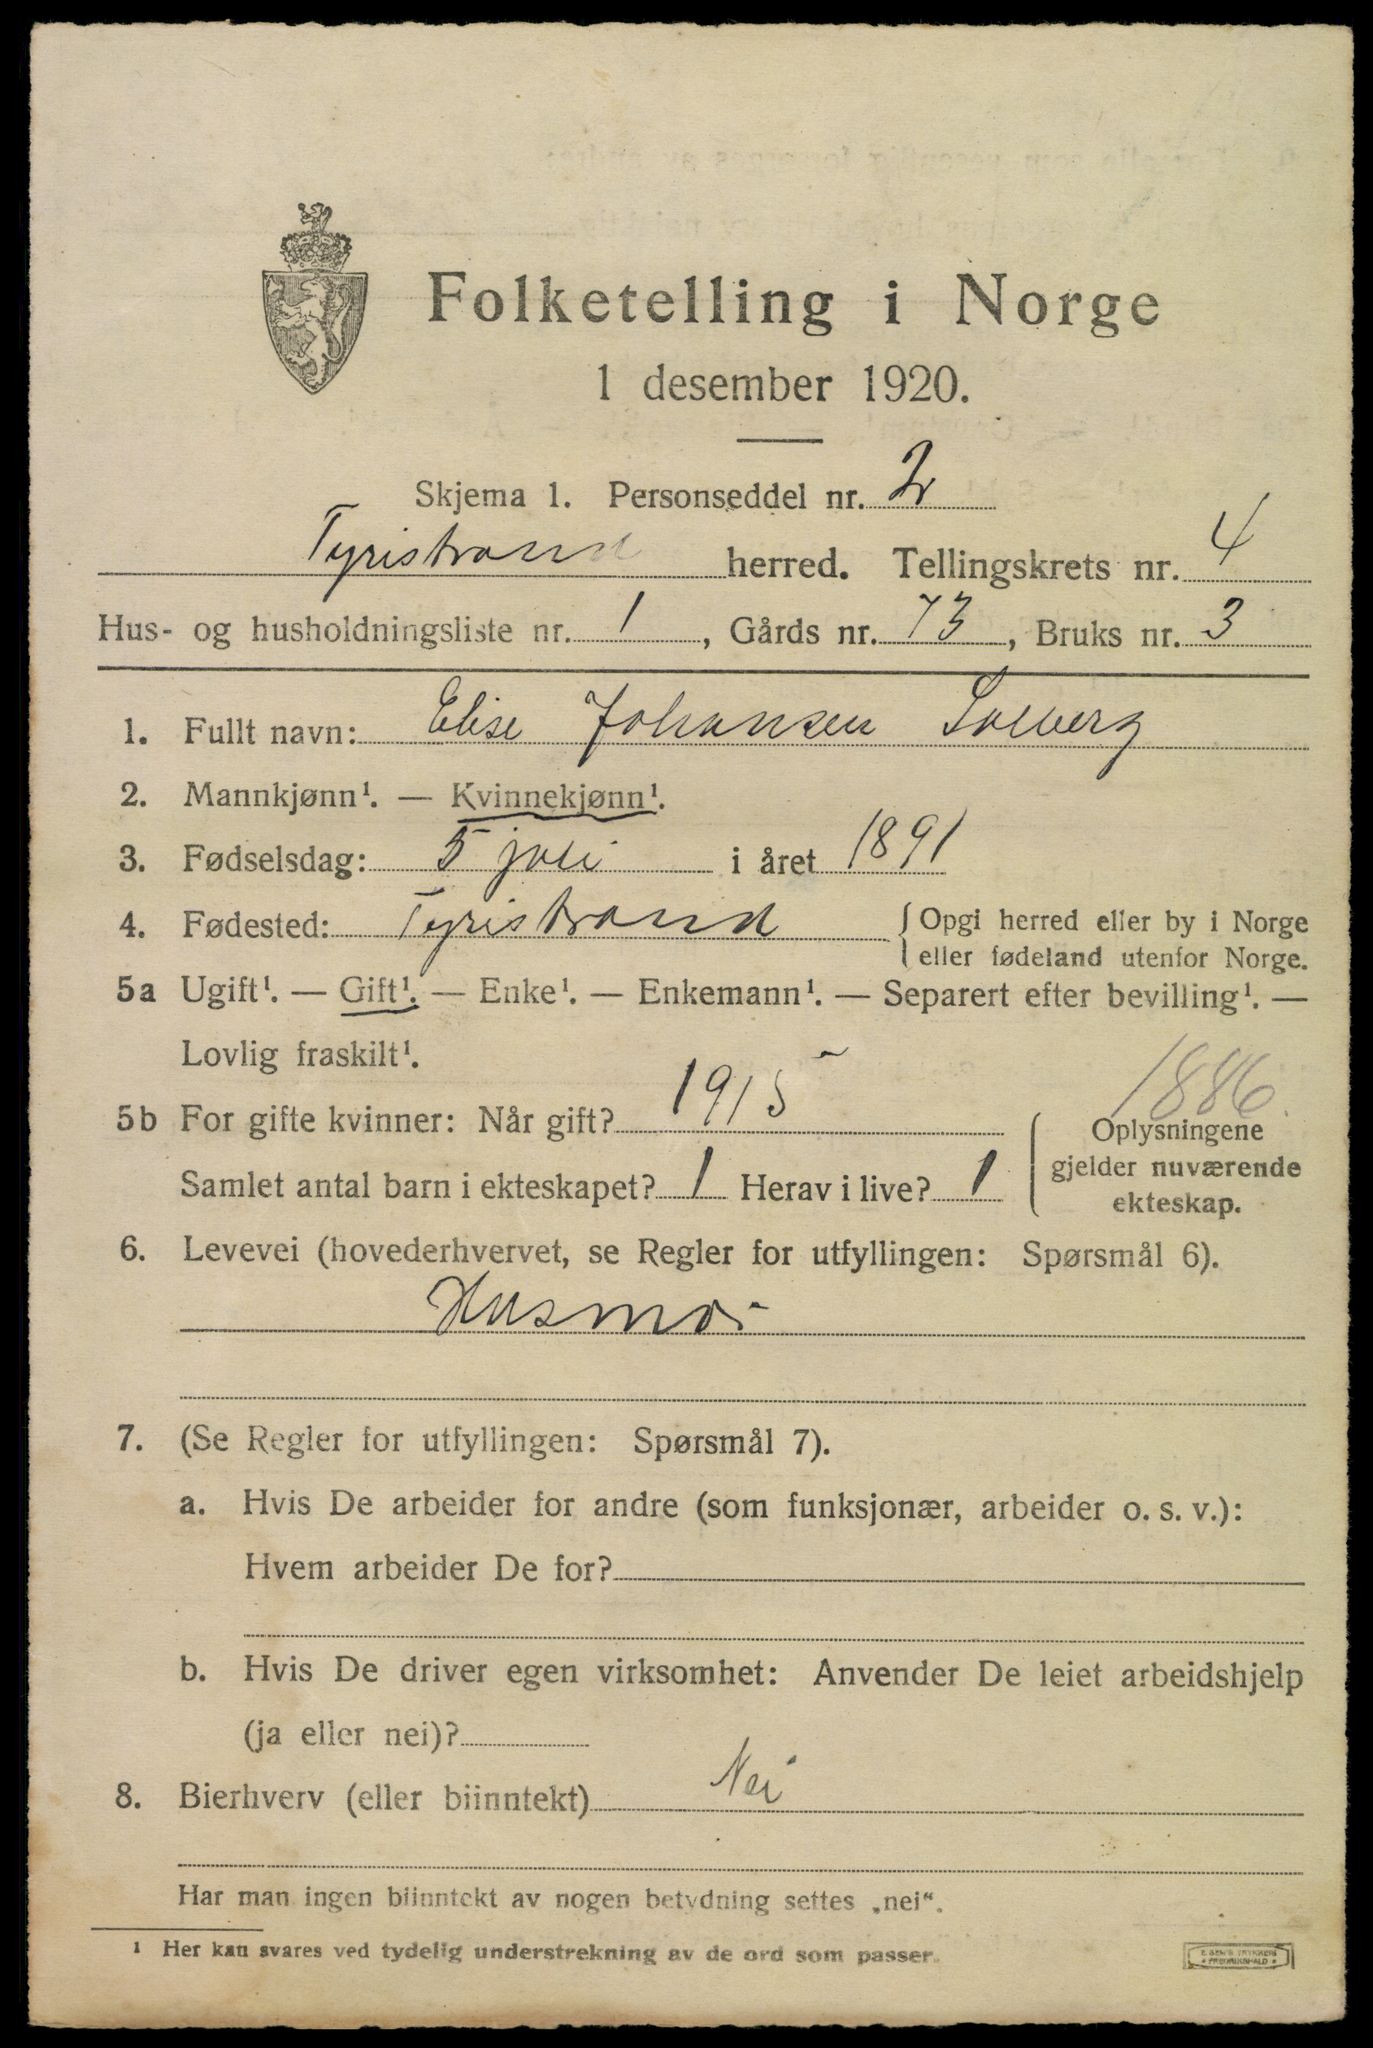 Folketelling i Norge
1 desember 1920.
Skjema 1. Personseddel nr. 2
Tyristrand herred. Tellingskrets nr. 4
Hus- og husholdningsliste nr. 1, Gårds nr. 73, Bruks nr. 3
1. Fullt navn: Elise Johansen Solberg
2. Mannkjønn¹. — Kvinnekjønn¹.
3. Fødselsdag: 5 juli i året 1891
4. Fødested: Tyristrand { Opgi herred eller by i Norge
eller fødeland utenfor Norge.
5a Ugift¹. — Gift¹. — Enke¹. — Enkemann¹. — Separert efter bevilling¹. —
Lovlig fraskilt¹.
1886.
5b For gifte kvinner: Når gift? 1915
Samlet antal barn i ekteskapet? 1 Herav i live? 1
{ Oplysningene
gjelder nuværende
ekteskap.
6. Levevei (hovederhvervet, se Regler for utfyllingen: Spørsmål 6).
Husmor
7. (Se Regler for utfyllingen: Spørsmål 7).
a. Hvis De arbeider for andre (som funksjonær, arbeider o. s. v.):
Hvem arbeider De for?
b. Hvis De driver egen virksomhet: Anvender De leiet arbeidshjelp
(ja eller nei)?
8. Bierhverv (eller biinntekt) Nei
Har man ingen biinntekt av nogen betydning settes „nei“.
¹ Her kan svares ved tydelig understrekning av de ord som passer.